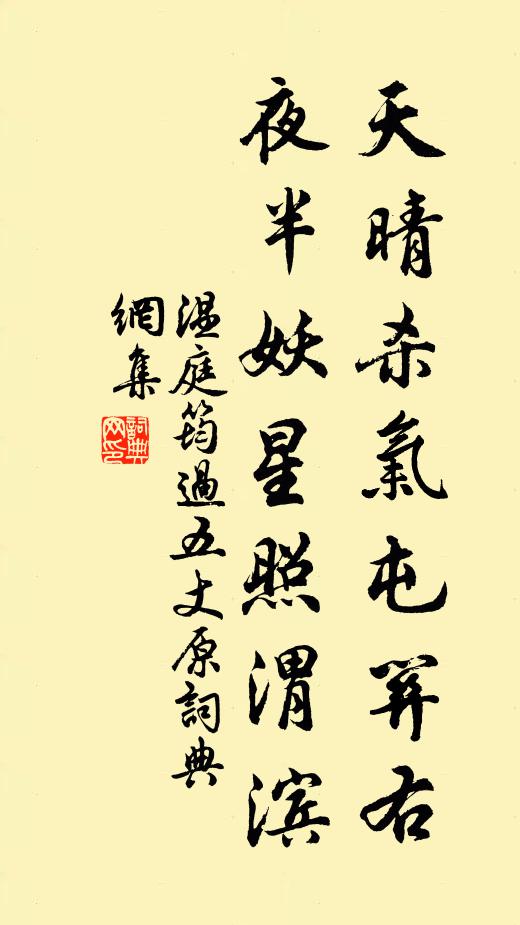 天晴杀氣屯關右
夜半妖星照渭滨
温庭筠過五丈原詞典
網集
詞典
网印